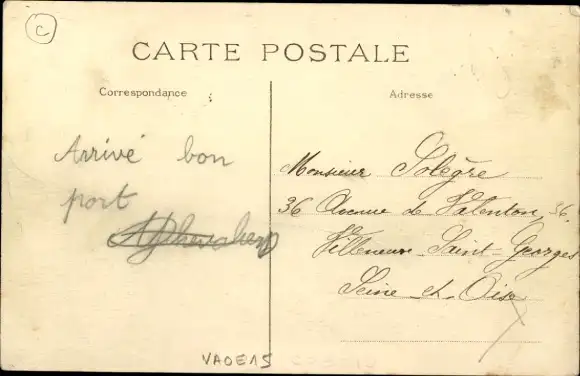 C
CARTE POSTALE
Correspondance
Adresse
Arrivé bon
port
Monsieur Solègre
36 Avenue de Valenton, 36.
Villeneuve Saint-Georges
Seine et Oise
VAOE15